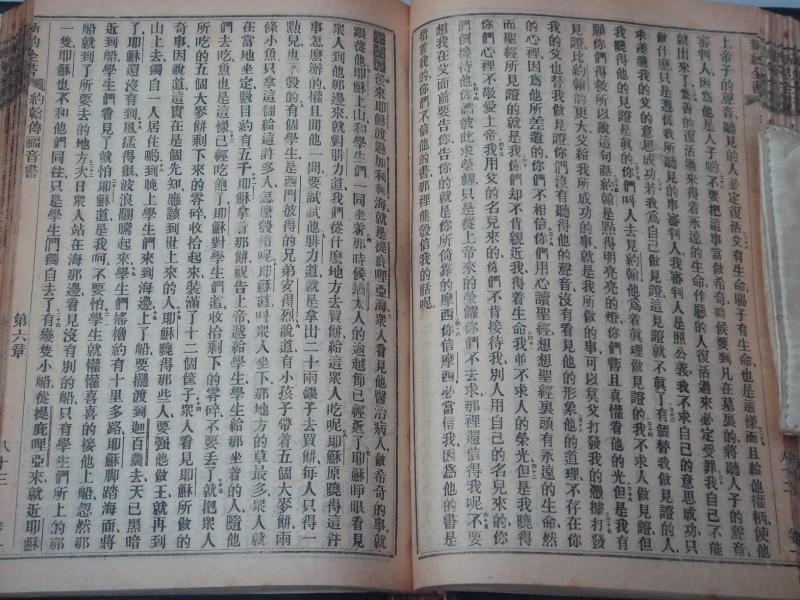 上帝子的聲音聽見的人必定復活父有生命賜子有生命也是這樣而且給他權柄使他
審判人因爲他是人子呦不要把這事當做希奇時候要到凡在墓裏的將聽人子的聲音
就出來了爲善的復活過來得着永遠的生命作惡的人復活過來必定受罪我自己不能
做什麽只是遵從我所聽見的事審判人我審判人是照公義我不求自己的意思成功只
求差遣我的父的意思成功若我爲自己做見證我的見證就不眞了有個替我做見證的人
我曉得他的見證是眞的你們呌人去見約翰他爲着眞理做見證的我不求人做見證但
願你們得救所以說這句話約翰是點得明亮亮的燈你們暫且喜懽看他的光但是我有
見證比約翰的更大父給我所成功的事就是我所做的事可以莫父打發我的憑據打發
我的父也替我做見證你們沒有聽得他的聲音沒有看見他的形象他的道理不存在你
們心裡因爲他所差遣的你們不相信你們用心讀聖經想想聖經裏頭有永遠的生命然
而聖經所見證的就是我你們却不肯親近我得着生命我並不求人的榮光但是我曉得
你們心裡不敬愛上帝我用父的名兒來的你們不肯接待我別人用自己的名兒來的你
們倒接待他你們彼此求榮耀只是從上帝來的榮耀你們不去求那裡還信得我呢不要
想我在父面前要告你們告你的就是你所倚靠的摩西你信摩西必當信我因爲他的書是
指着我的你們不信他的書那裡能彀信我的話呢
後來耶穌渡過加利利海就是從底哩亞海衆人看見他醫治病人做希奇的事就
跟從他耶穌上山和學生們一同坐着那時候猶太人的逾越節已經近了耶穌睜眼看見
衆人到他那邊來就對腓力道我們從什麽地方去買餅給這衆人吃呢耶穌原曉得這件
事怎麽辦的權且問他一問要試試他腓力道就是拿出二十兩銀子去買餅每人只得一
點兒也不彀的有個學生是西門彼得的兄弟安得烈說道有小孩子帶着五個大麥餅兩
條小魚只拿這個給這許多人怎麽彀用呢耶穌道呌衆人坐下那地方的草最多衆人就
在當地坐定數目約有五千耶穌拿着那餅祝告上帝遞給學生學生給那坐着的人隨他
們去吃魚也是這樣已經吃飽了耶穌對學生們道收拾剩下的零碎不要丟了就把衆人
所吃的五個大麥餅剩下來的零碎收拾起來裝滿了十二個筐子衆人看見耶穌所做的
奇事因說道這實在是個先知應該到世上來的人耶穌曉得那些人要強他做王就再到
山上去獨自一人居住晌到晚上學生們來到海邊上了船要擺渡到迦百農去天已黑暗
了耶穌還沒有到風猛得狠波浪翻騰起來學生們搖櫓約有十里多路耶穌脚踏海面將
近到船學生們看見了就怕耶穌道是我呵不要怕學生就懽懽喜喜的接他上船忽然那
船就到了所要去的地方次日衆人站在海那邊看見沒有別的船只有學生們所上的那
一隻耶穌也不和他們同往只是學生們獨自去了有幾隻小船從提庇哩亞來就近耶穌
新約全書
約翰傳福音書
第六章
八十三